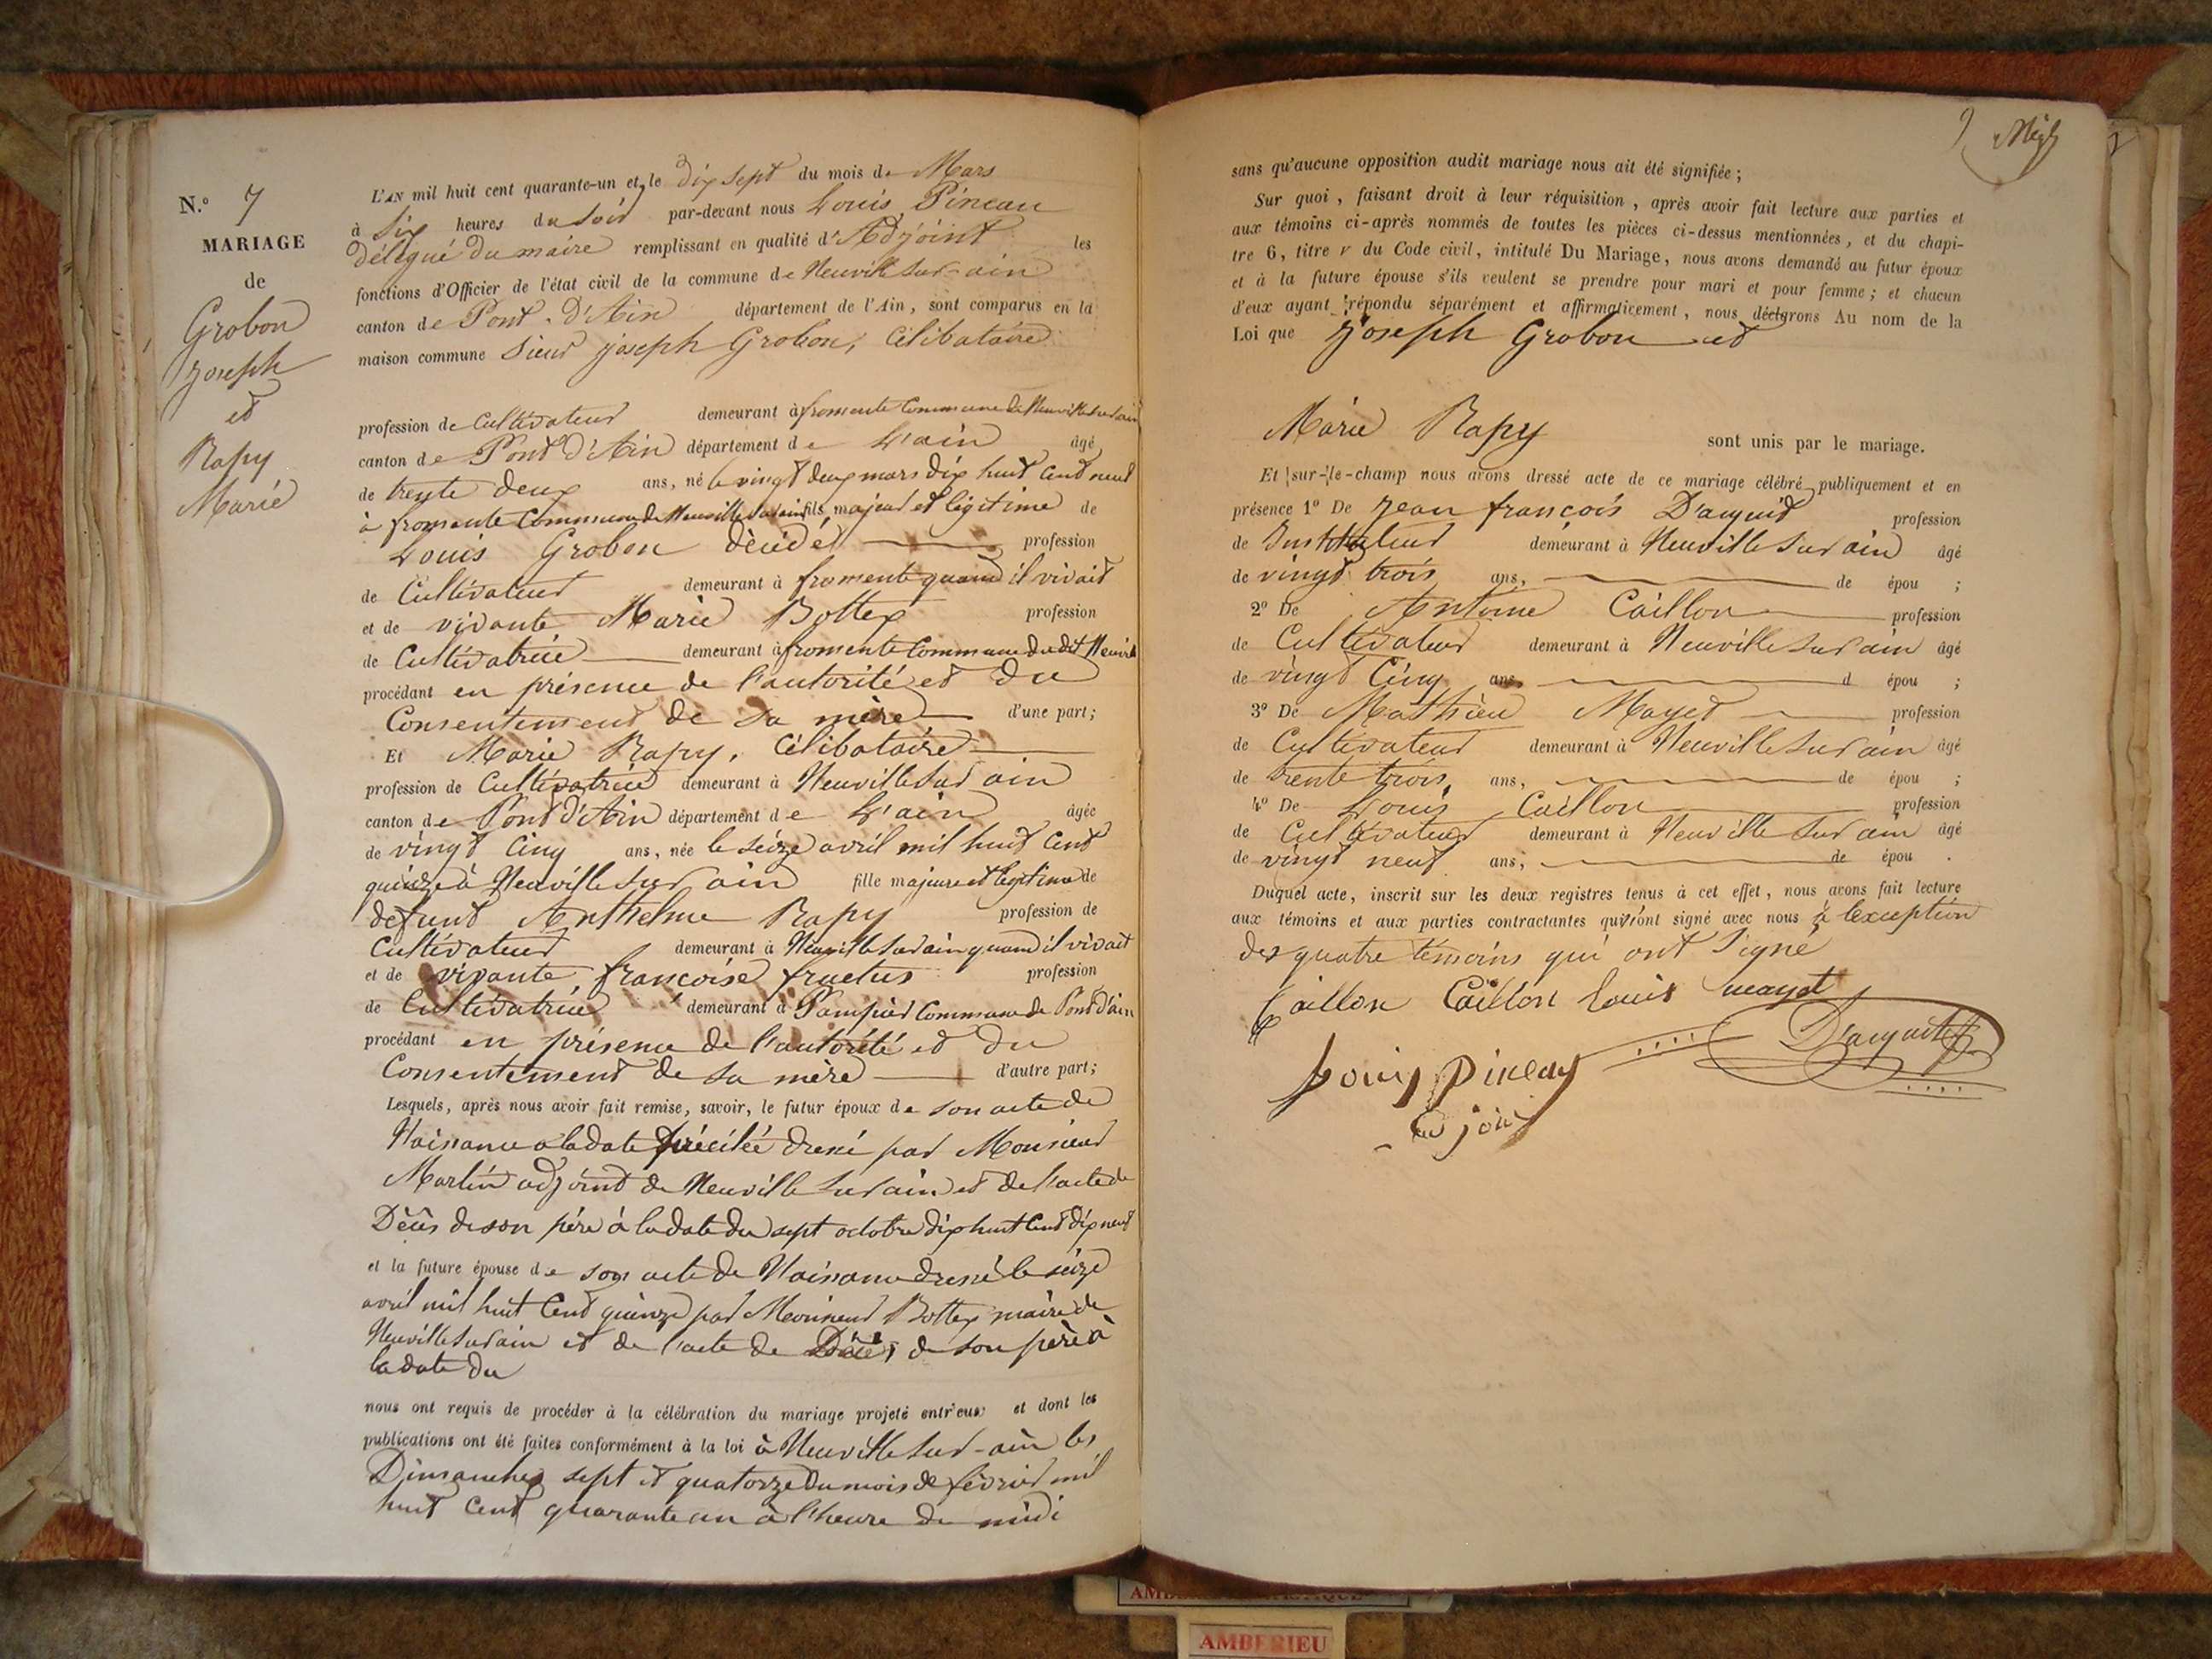 N.° 7
MARIAGE
de
Grobon
joseph
et
Rapy
Marie
L'AN mil huit cent quarante-un et le dix sept du mois de Mars
à six heures du soir par-devant nous Louis Pineau
délégué du maire remplissant en qualité d'Adjoint les
fonctions d'Officier de l'état civil de la commune de Neuville sur-ain
canton de Pont-d'Ain département de l'Ain, sont comparus en la
maison commune sieur joseph Grobon, Célibataire
profession de Cultivateur demeurant à fromente Commune de Neuville sur ain
canton de Pont d'Ain département de L'ain âgé
de trente deux ans, né le vingt deux mars dix huit Cent neuf
à fromente Commune de Neuville sur ain fils majeur et légitime de
Louis Grobon décédé profession
de Cultivateur demeurant à fromente quand il vivait
et de vivante Marie Bottex profession
de Cultivatrice demeurant à fromente Commune du dit Neuville
procédant en présence de l'autorité et du
Consentement de sa mère d'une part;
Et Marie Rapy, Célibataire
profession de Cultivatrice demeurant à Neuville sur ain
canton de Pont d'Ain département de L'ain âgée
de vingt Cinq ans, née le seize avril mil huit Cent
quinze à Neuville sur ain fille majeure et légitime de
defunt Anthelme Rapy profession de
Cultivateur demeurant à Neuville sur ain quand il vivait
et de vivante françoise fructus profession
de Cultivatrice demeurant à Pampier Commune de Pont d'ain
procédant en présence de l'autorité et du
Consentement de sa mère d'autre part;
Lesquels, après nous avoir fait remise, savoir, le futur époux de son acte de
Naissance a la date précitée dressé par Monsieur
Martin adjoint de Neuville sur ain et de l'acte de
Décès de son père à la date du sept octobre dix huit Cent dix neuf
et la future épouse de son acte de Naissance dressé le seize
avril mil huit Cent quinze par Monsieur Bottex maire de
Neuville sur ain et de l'acte de Décès de son père à
la date du
nous ont requis de procéder à la célébration du mariage projeté entr'eux et dont les
publications ont été faites conformément à la loi à Neuville sur-ain les
Dimanches sept et quatorze du mois de février mil
huit Cent quarante un à l'heure de midi
sans qu'aucune opposition audit mariage nous ait été signifiée;
Sur quoi, faisant droit à leur réquisition, après avoir fait lecture aux parties et
aux témoins ci-après nommés de toutes les pièces ci-dessus mentionnées, et du chapi-
tre 6, titre V du Code civil, intitulé Du Mariage, nous avons demandé au futur époux
et à la future épouse s'ils veulent se prendre pour mari et pour femme; et chacun
d'eux ayant répondu séparément et affirmativement, nous déclarons Au nom de la
Loi que joseph Grobon et
Marie Rapy sont unis par le mariage.
Et sur-le-champ nous avons dressé acte de ce mariage célébré publiquement et en
présence 1° De jean françois profession
de Instituteur demeurant à Neuville sur ain âgé
de vingt trois ans, de épou ;
2° De Antoine Caillon profession
de Cultivateur demeurant à Neuville sur ain âgé
de vingt Cinq ans, d épou ;
3° De Mathieu Mayet profession
de Cultivateur demeurant à Neuville sur ain âgé
de trente trois ans, de épou ;
4° De Louis Caillon profession
de Cultivateur demeurant à Neuville sur ain âgé
de vingt neuf ans, de épou .
Duquel acte, inscrit sur les deux registres tenus à cet effet, nous avons fait lecture
aux témoins et aux parties contractantes qui ont signé avec nous à lexception
des quatre témoins qui ont signé
Caillon Caillon louis mayet
Louis Pineau
AMBERIEU